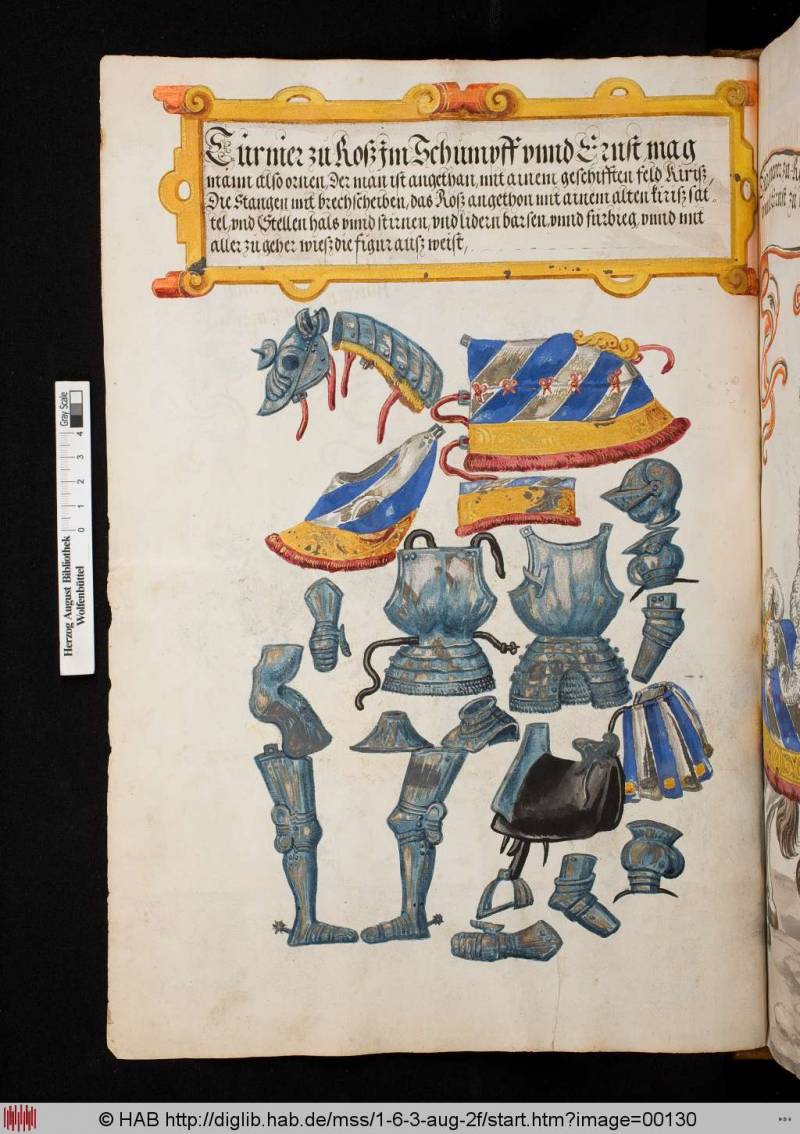 Turnier zu Roß im Schimpff vnnd Ernst mag
mann also ornen, Der man ist angethan, mit ainem geschifften feld Kiriß,
Die Stangen mit brechscheiben, das Roß angethon mit ainem alten kiriß sat
tel, vnd Stellen hals vnnd stirnen, vnd lidern barsen, vnnd fürbieg, vnnd mit
aller zu geher wieß die figur außweist,
Herzog August Bibliothek
Wolfenbüttel
0 1 2 3 4
Gray Scale
© HAB http://diglib.hab.de/mss/1-6-3-aug-2f/start.htm?image=00130